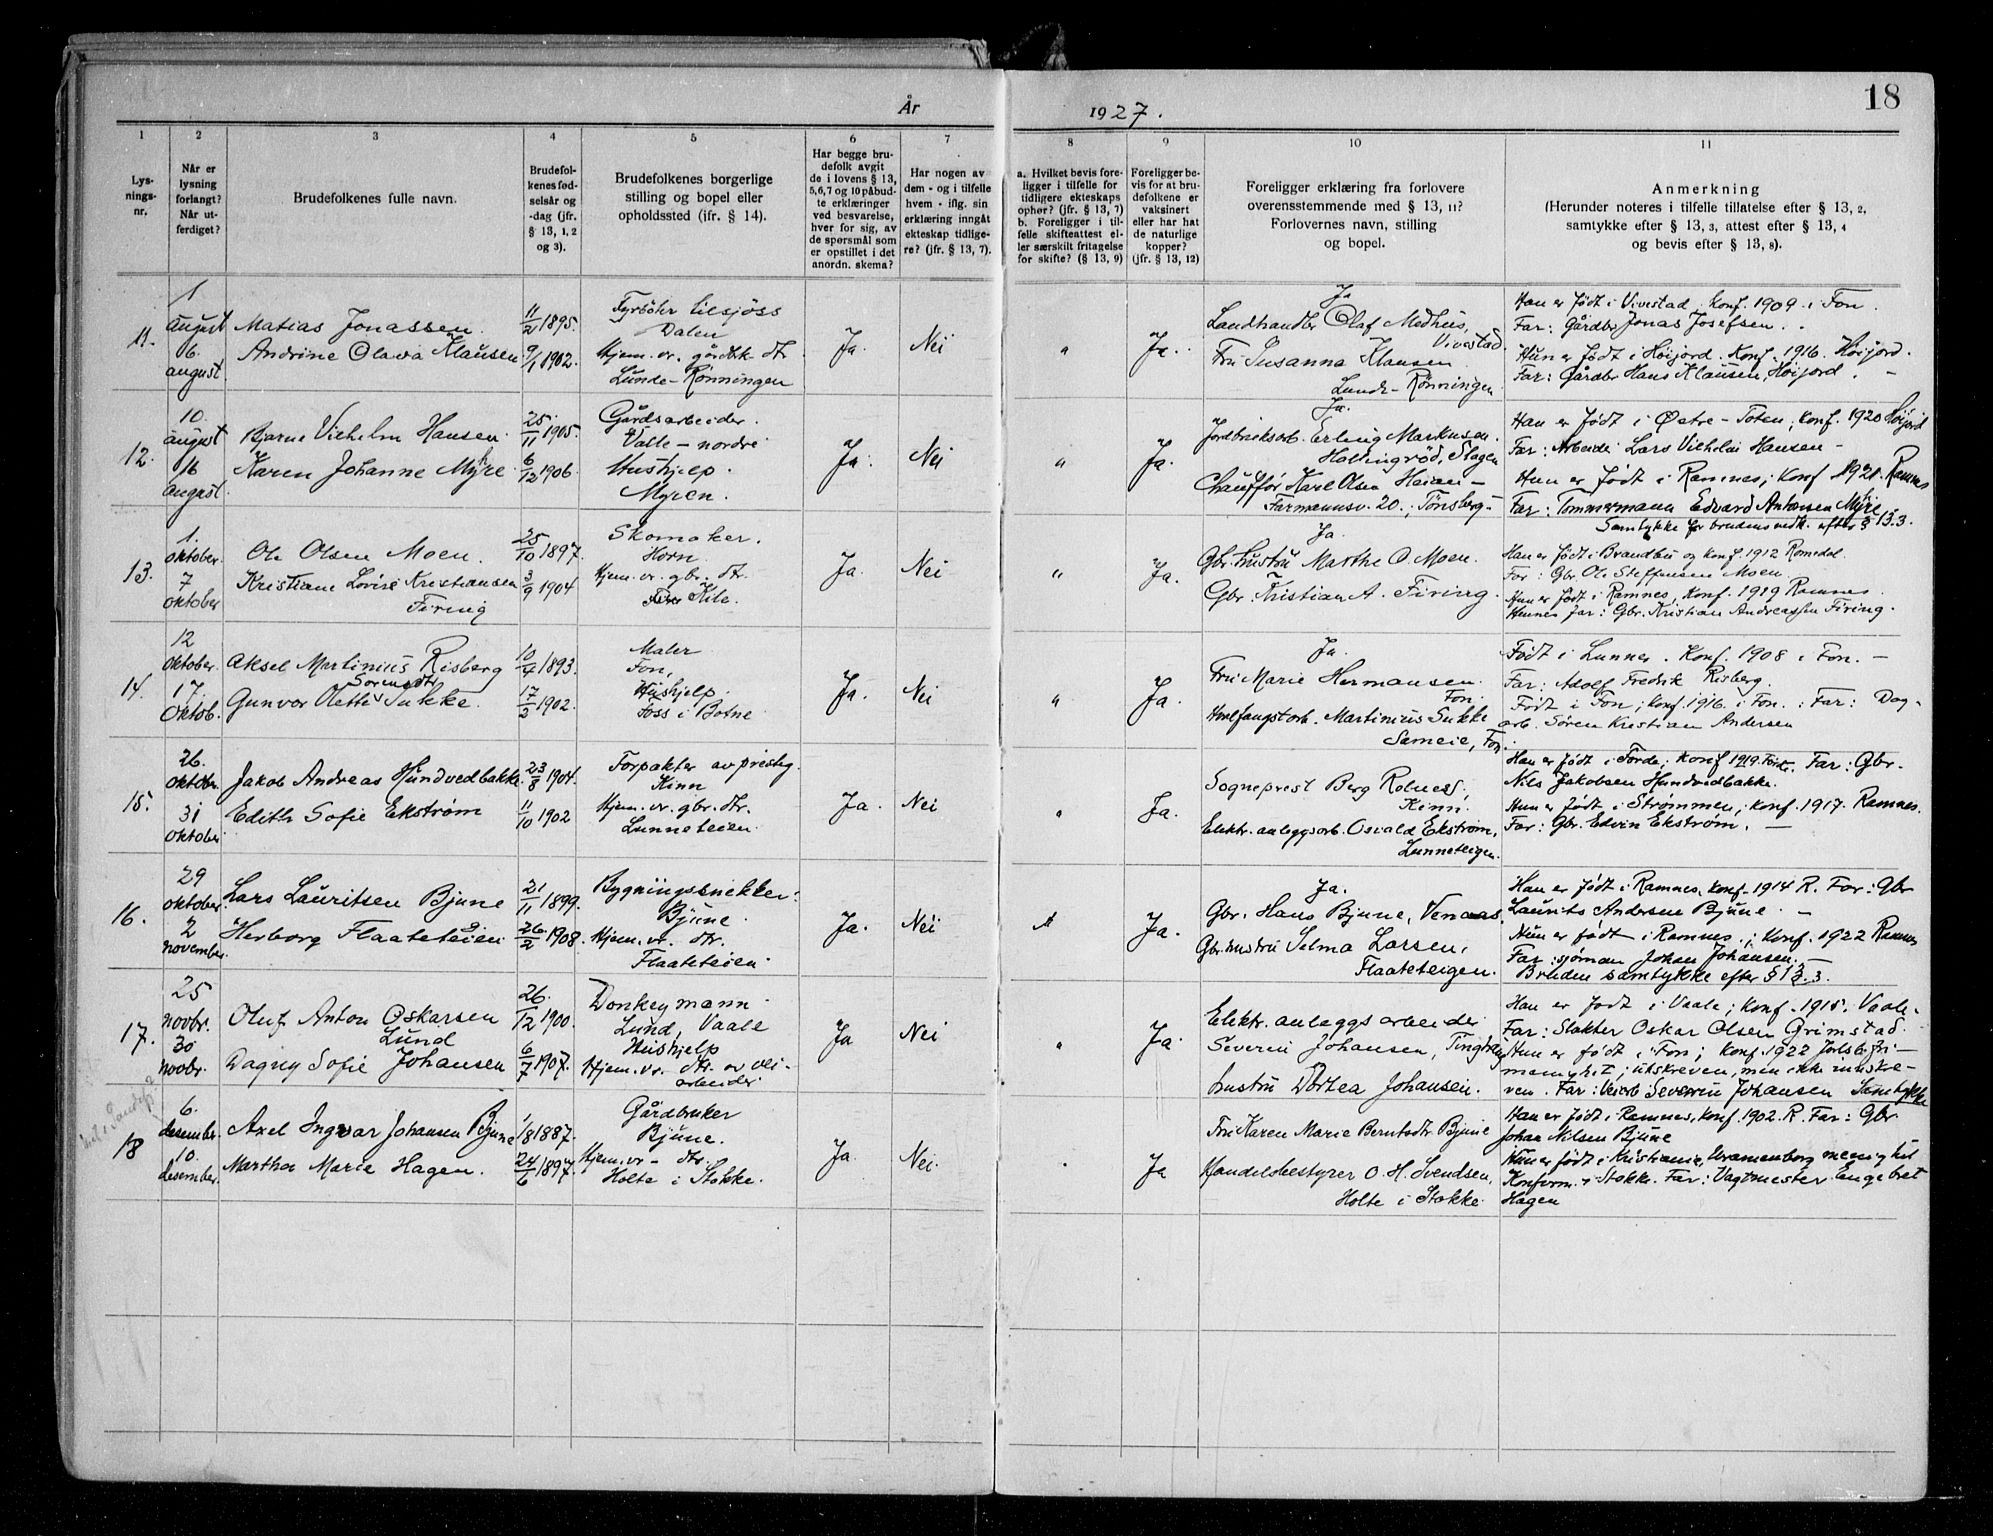 År
1927.
18
1
2
3
4
5
6
7
8
9
10
11
Lys-
nings-
nr.
Når er
lysning
forlangt?
Når ut-
ferdiget?
Brudefolkenes fulle navn.
Brudefol-
kenes fød-
selsår og
-dag (jfr.
§ 13, 1, 2
og 3).
Brudefolkenes borgerlige
stilling og bopel eller
opholdssted (ifr. § 14).
Har begge bru-
defolk avgit
de i lovens § 13,
5, 6, 7 og 10 påbud-
te erklæringer
ved besvarelse,
hver for sig, av
de spørsmål som
er opstillet i det
anordn. skema?
Har nogen av
dem - og i tilfelle
hvem - iflg. sin
erklæring inngåt
ekteskap tidlige-
re? (jfr. § 13, 7).
a. Hvilket bevis fore-
ligger i tilfelle for
tidligere ekteskaps
ophør? (jfr. § 13, 7)
b. Foreligger i til-
felle skifteattest el-
ler særskilt fritagelse
for skifte? (§ 13, 9)
Foreligger be-
vis for at bru-
defolkene er
vaksinert
eller har hat
de naturlige
kopper?
(jfr. § 13, 12)
Foreligger erklæring fra forlovere
overensstemmende med § 13, 11?
Forlovernes navn, stilling
og bopel.
Anmerkning
(Herunder noteres i tilfelle tillatelse efter § 13, 2,
samtykke efter § 13, 3, attest efter § 13, 4
og bevis efter § 13, 8).
11.
1
august
6.
august
Matias Jonassen.
Andrine Olava Klausen
11/2 1895.
9/1 1902.
Fyrbøter tilsjøss
Dalen
Hjem. vr. gårdbk. dtr
Lunde-Rønningen
Ja.
Nei
"
Ja.
Ja
Landhandler Olaf Medhus,
Vivestad
Fru Susanna Klausen
Lunde-Rønningen
Han er født i Vivestad. Konf. 1909 i Fon.
Far: Gårdbr Jonas Josefsen.
Hun er født i Høijord. Konf. 1916. Høijord.
Far: Gårdbr Hans Klausen, Høijord.
12.
10.
august
16
august.
Bjarne Vilhelm Hansen.
Karen Johanne Myhre
25/11 1905.
6/12 1906
Gårdsarbeider
Valle - nordre
Hushjelp.
Myren.
Ja.
Nei
"
Ja.
Ja.
Jordbruksarb. Erling Markussen.
Hallingrød, Slagen
Chauffør Karl Olsen Heian -
Farmannsv. 20., Tønsberg-
Han er født i Østre-Toten, konf. 1920 Høijord
Far: Arbeider Lars Vilhelm Hansen -
Hun er født i Ramnes; konf 1921. Ramnes
Far: Tømmermann Edvard Antonsen Myhre
Samtykke for brudens vedk. efter § 13.3.
13.
1.
oktober.
7
oktober
Ole Olsen Moen.
Kristiane Lovise Kristiansen
Firing
25/10 1897.
3/9 1904
Skomaker.
Horn
Hjem. vr. gbr. dtr.
Kile.
Ja
Nei
"
Ja.
Ja.
Gbr. hustru Marthe O. Moen.
Gbr Kristian A. Firing.
Han er født i Brandbu og konf. 1912 Romedal.
Far: Gbr. Ole Steffensen Moen.
Hun er født i Ramnes, Konf. 1919 Ramnes.
Hennes far: Gbr. Kristian Andreassen Firing.
14.
12
oktober.
17
oktob.
Aksel Martinius Risberg
Sørensdtr
Gunvor Olette Sukke.
10/4 1893.
17/2 1902.
Maler
Fon,
Hushjelp.
Foss i Botne
Ja.
Nei
"
Ja.
Ja.
Fru Marie Hermansen.
Fon.
Hvalfangstarb. Martinius Sukke
Sameie, Fon.
Født i Lunner. Konf. 1908 i Fon. -
Far: Adolf Fredrik Risberg.
Født i Fon; konf. 1916. i Fon.: Far: Dag-
arb. Søren Kristian Andersen
15.
26.
oktober.
31
oktober
Jakob Andreas Hundvedbakke
Edith Sofie Ekstrøm
23/8 1904.
11/10 1902
Forpakter av presteg.
Kinn
Hjem. vr. gbr. dtr.
Lunneteien.
Ja.
Nei
"
Ja.
Sogneprest Berg Rolness,
Kinn.
Elektr. anleggsarb. Osvald Ekstrøm,
Lunneteigen.
Han er født i Førde; konf 1919 Førde. Far: Gbr.
Nils Jakobsen Hundvedbakke.
Hun er født i Strømmen; konf. 1917. Ramnes.
Far: Gbr. Edvin Ekstrøm. -
16.
29
oktober
2
november
Lars Lauritsen Bjune
Herborg Flaateteien
21/11 1899.
26/2 1908.
Bygningssnekker.
Bjune.
Hjem. vr. dtr.
Flaateteien.
Ja.
Nei
"
Ja.
Ja.
Gbr. Hans Bjune, Venaas.
Gbr. hustru Selma Larsen,
Flaateteigen.
Han er født i Ramnes, konf. 1914 R. Far: Gbr
Laurits Andersen Bjune. -
Hun er født i Ramnes.; Konf. 1922 Ramnes
Far: sjømann Johan Johansen.
Bruden samtykke efter § 13.3.
17.
25
novbr.
30
novbr.
Oluf Anton Oskarsen
Lund
Dagny Sofie Johansen
26/12 1900.
6/7 1907.
Donkeymann
Lund, Vaale
Hushjelp
Hjem. vr. dtr. av vei-
arbeider
Ja
Nei
"
Ja.
Elektr. anleggsarbeider
Severin Johansen,
hustru Dortea Johansen.
Han er født i Vaale; konf. 1915. Vaale-
Far: Slakter Oskar Olsen Grimstad.
Hun er født i Fon; konf. 1922 Jarlsb. fri-
menighet; utskreven, men ikke innskre-
ven. Far: Veiarb. Severin Johansen Samtykke
18
6.
desember.
10.
desember.
Axel Ingvar Johansen Bjune
Martha Marie Hagen.
1/8 1887.
24/6 1897.
Gårdbruker
Bjune.
Hjem. vr - dtr.
Holte i Stokke.
Ja
Nei.
Ja
Fru Karen Marie Berntsdtr Bjune
Handelsbestyrer O. H. Svendsen,
Holte i Stokke.
Han er født i Ramnes, konf. 1902. R. Far: Gbr
Johan Nilsen Bjune
Hun er født i Kristiania, Uranienborg menighet
Konform. i Stokke. Far: Vagtmester Engebret
Hagen